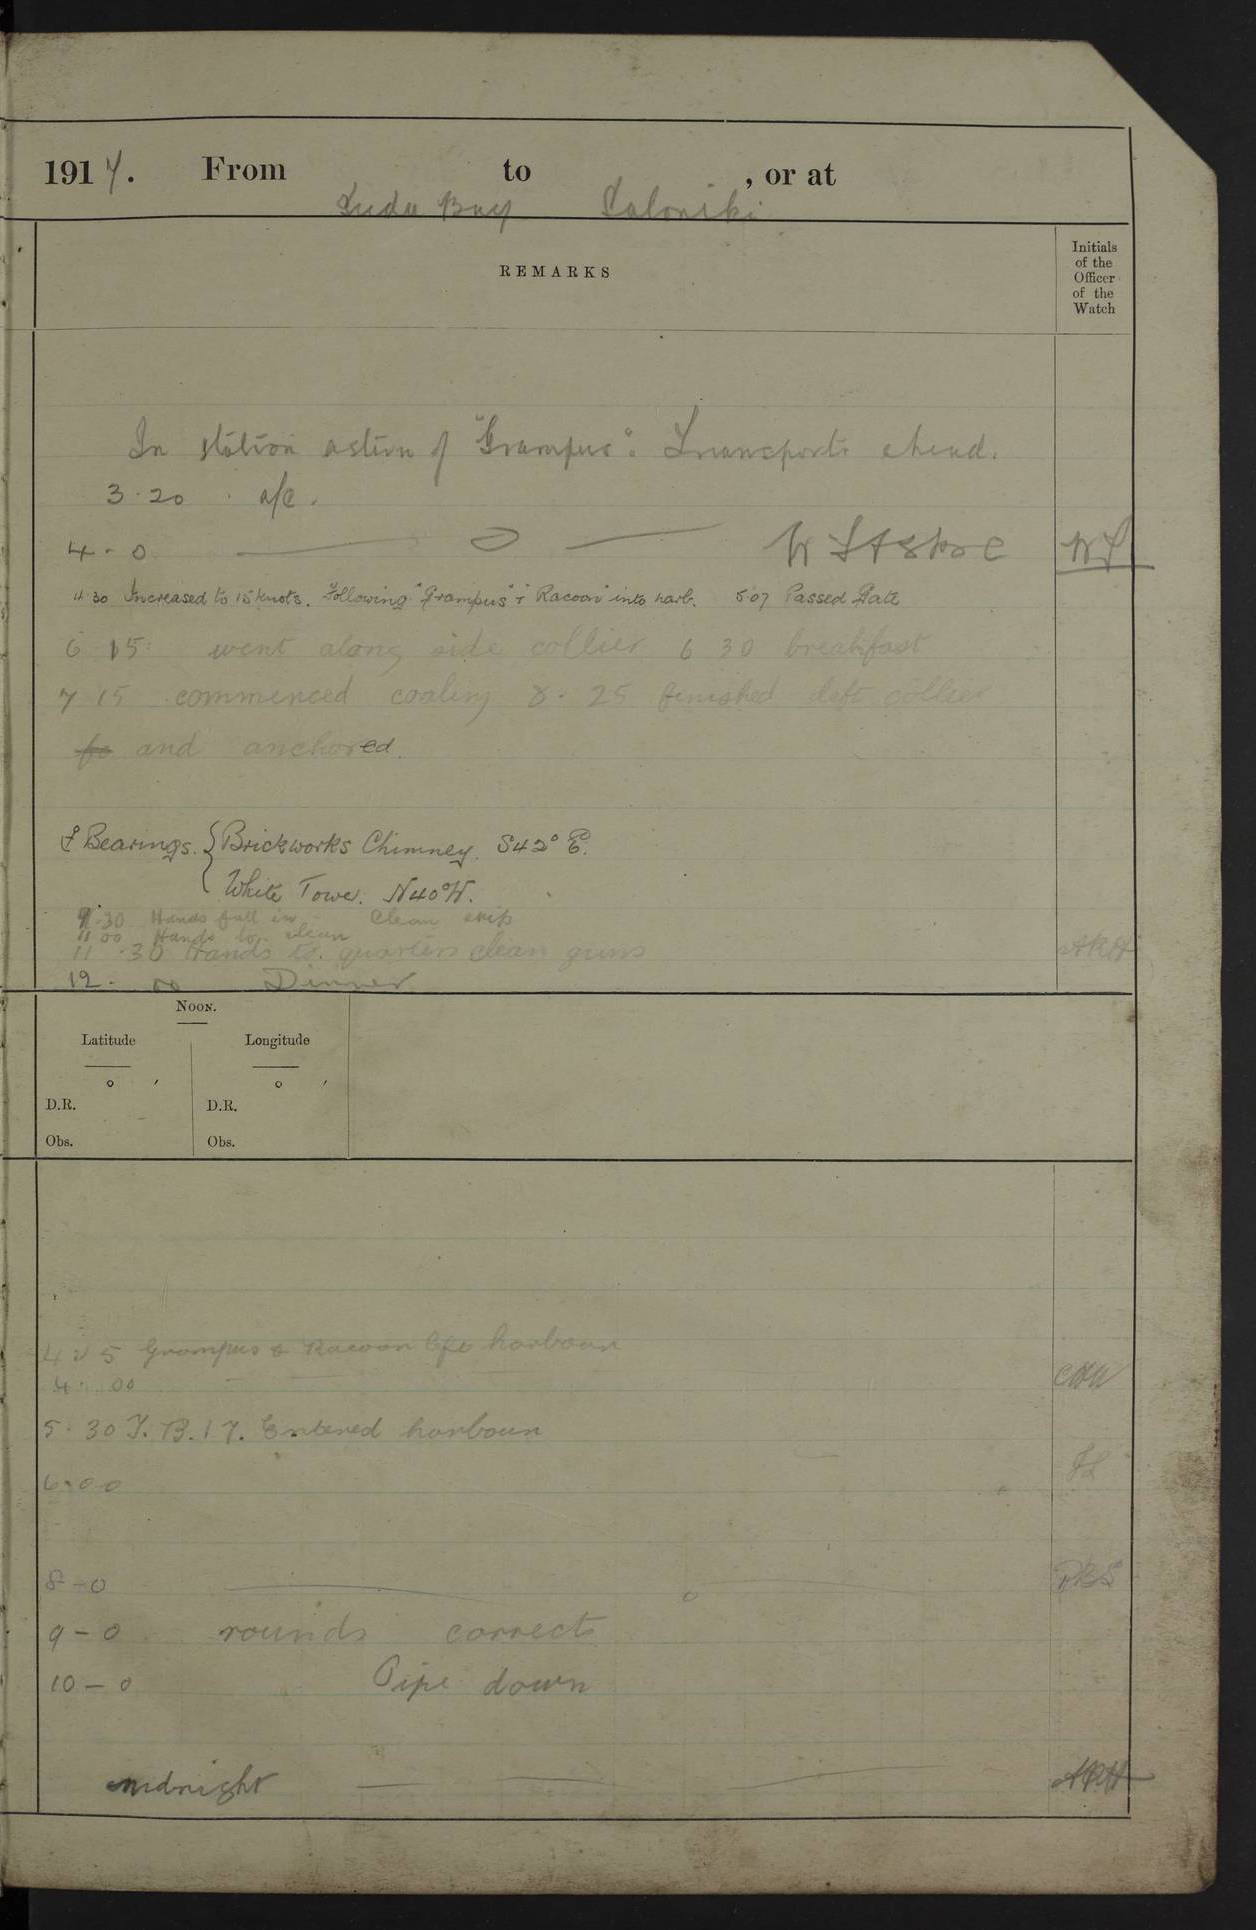 1917. From to , or at
Suda Bay Saloniki
REMARKS
Initials
of the
Officer
of the
Watch
In station astern of "Grampus". Transports ahead.
3.20 a/c.
4.0
4.30 Increased to 15 knots. Following "Grampus" & "Racoon" into harb. 5.07 Passed Gate
6 15 went along side collier 6 30 breakfast
7 15 commenced coaling 8.25 finished left collier
and anchored.
Bearings. { Brickworks Chimney. S42° E.
White Tower. N40°W.
9.30 Hands fall in clean ship
11 00 Hands to clean
11.30 Hands to quarters clean guns ARH
12. 00 Dinner
NOON.
Latitude Longitude
° ′ ° ′
D.R. D.R.
Obs. Obs.
Grampus & Racoon left harbour
4.00
5.30 T.B.17. Entered harbour
6.00
8-0
9-0 rounds correct
10-0 Pipe down
midnight ARH